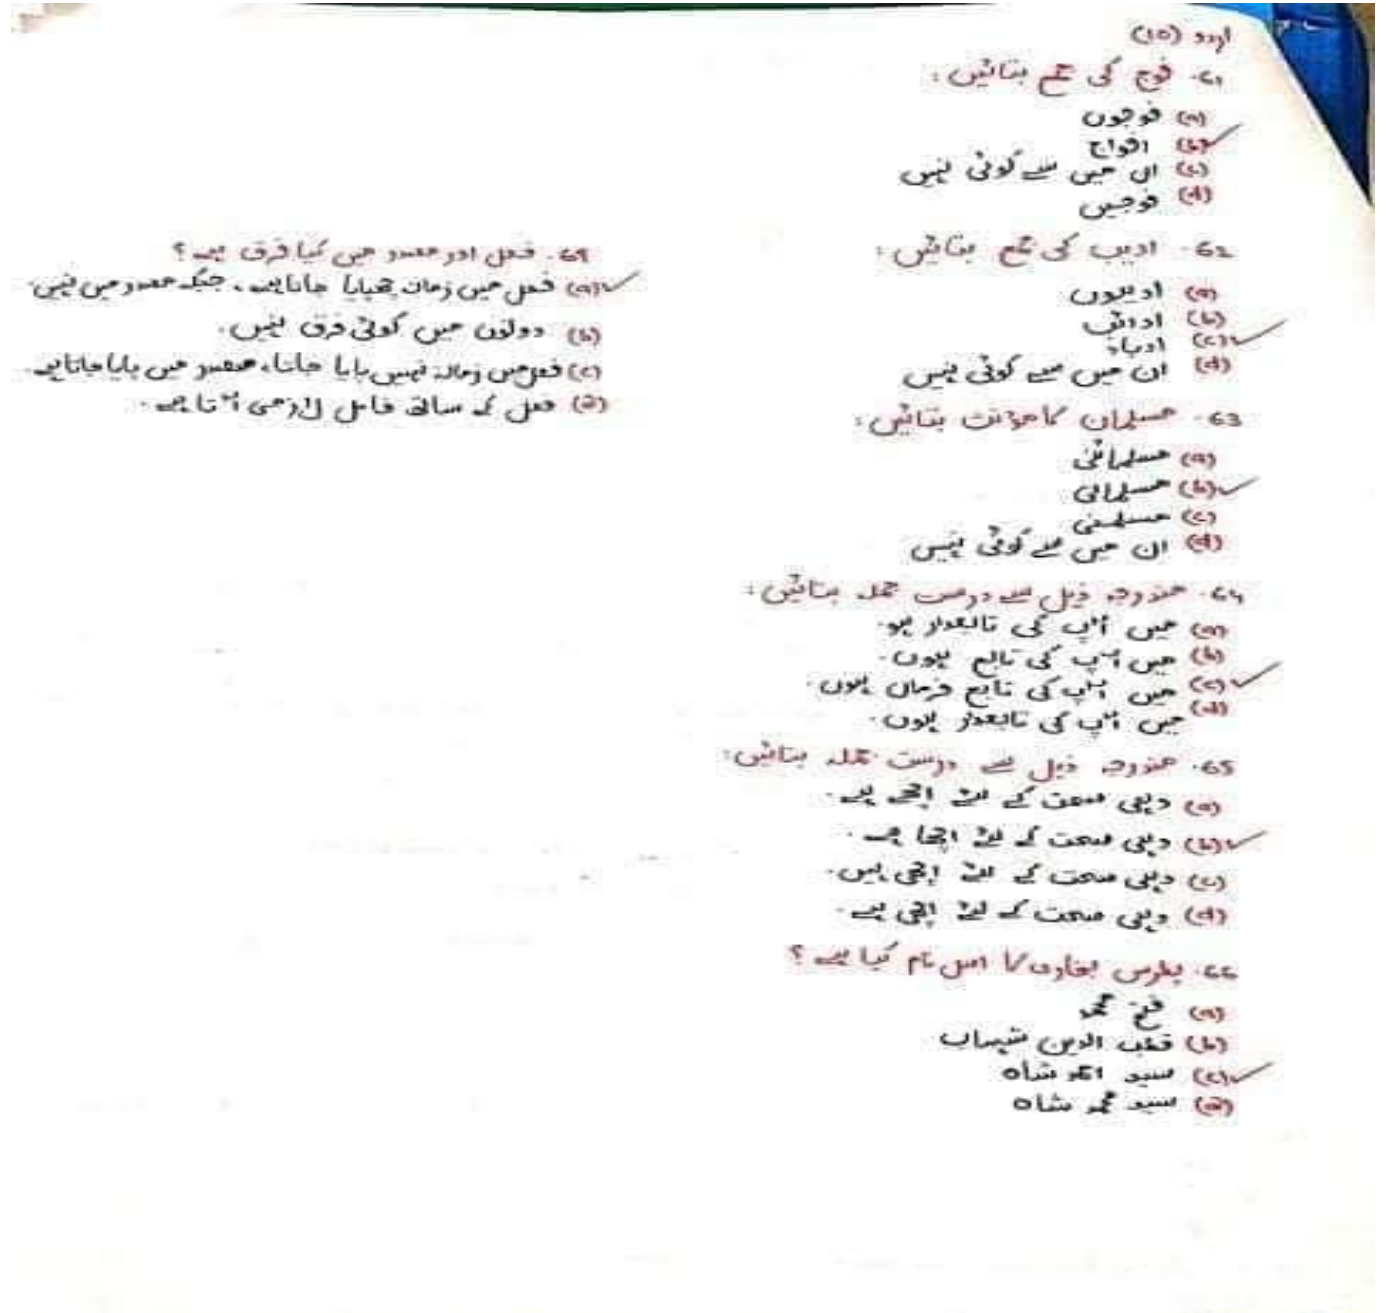 اردو (10)
61. فوج کی جمع بتائیں:
(a) فوجوں
(b) افواج
(c) ان میں سے کوئی نہیں
(d) فوجیں
62. ادیب کی جمع بتائیں:
(a) ادیبوں
(b)
(c) ادباء
(d) ان میں سے کوئی نہیں
63. مسلمان کا مؤنث بتائیں:
(a) مسلمانی
(b) مسلمانی
(c) مسلمنی
(d) ان میں سے کوئی نہیں
64. مندرجہ ذیل سے درست جملہ بتائیں:
(a) میں آپ کی تابعدار ہو۔
(b) میں آپ کی تابع ہوں۔
(c) میں آپ کی تابع فرمان ہوں۔
(d) میں آپ کی تابعدار ہوں۔
65. مندرجہ ذیل سے درست جملہ بتائیں:
(a) دہی صحت کے لئے اچھے ہے۔
(b) دہی صحت کے لئے اچھا ہے۔
(c) دہی صحت کے لئے اچھی ہیں۔
(d) دہی صحت کے لئے اچھی ہے۔
66. پطرس بخاری کا اصل نام کیا ہے؟
(a) فتح محمد
(b) قطب الدین شہاب
(c) سید احمد شاہ
(d) سید محمد شاہ
69. فعل اور مصدر میں کیا فرق ہے؟
(a) فعل میں زمانہ پایا جاتا ہے، جبکہ مصدر میں نہیں۔
(b) دونوں میں کوئی فرق نہیں۔
(c) فعل میں زمانہ نہیں پایا جاتا، مصدر میں پایا جاتا ہے۔
(d) فعل کے ساتھ فاعل لازمی آتا ہے۔